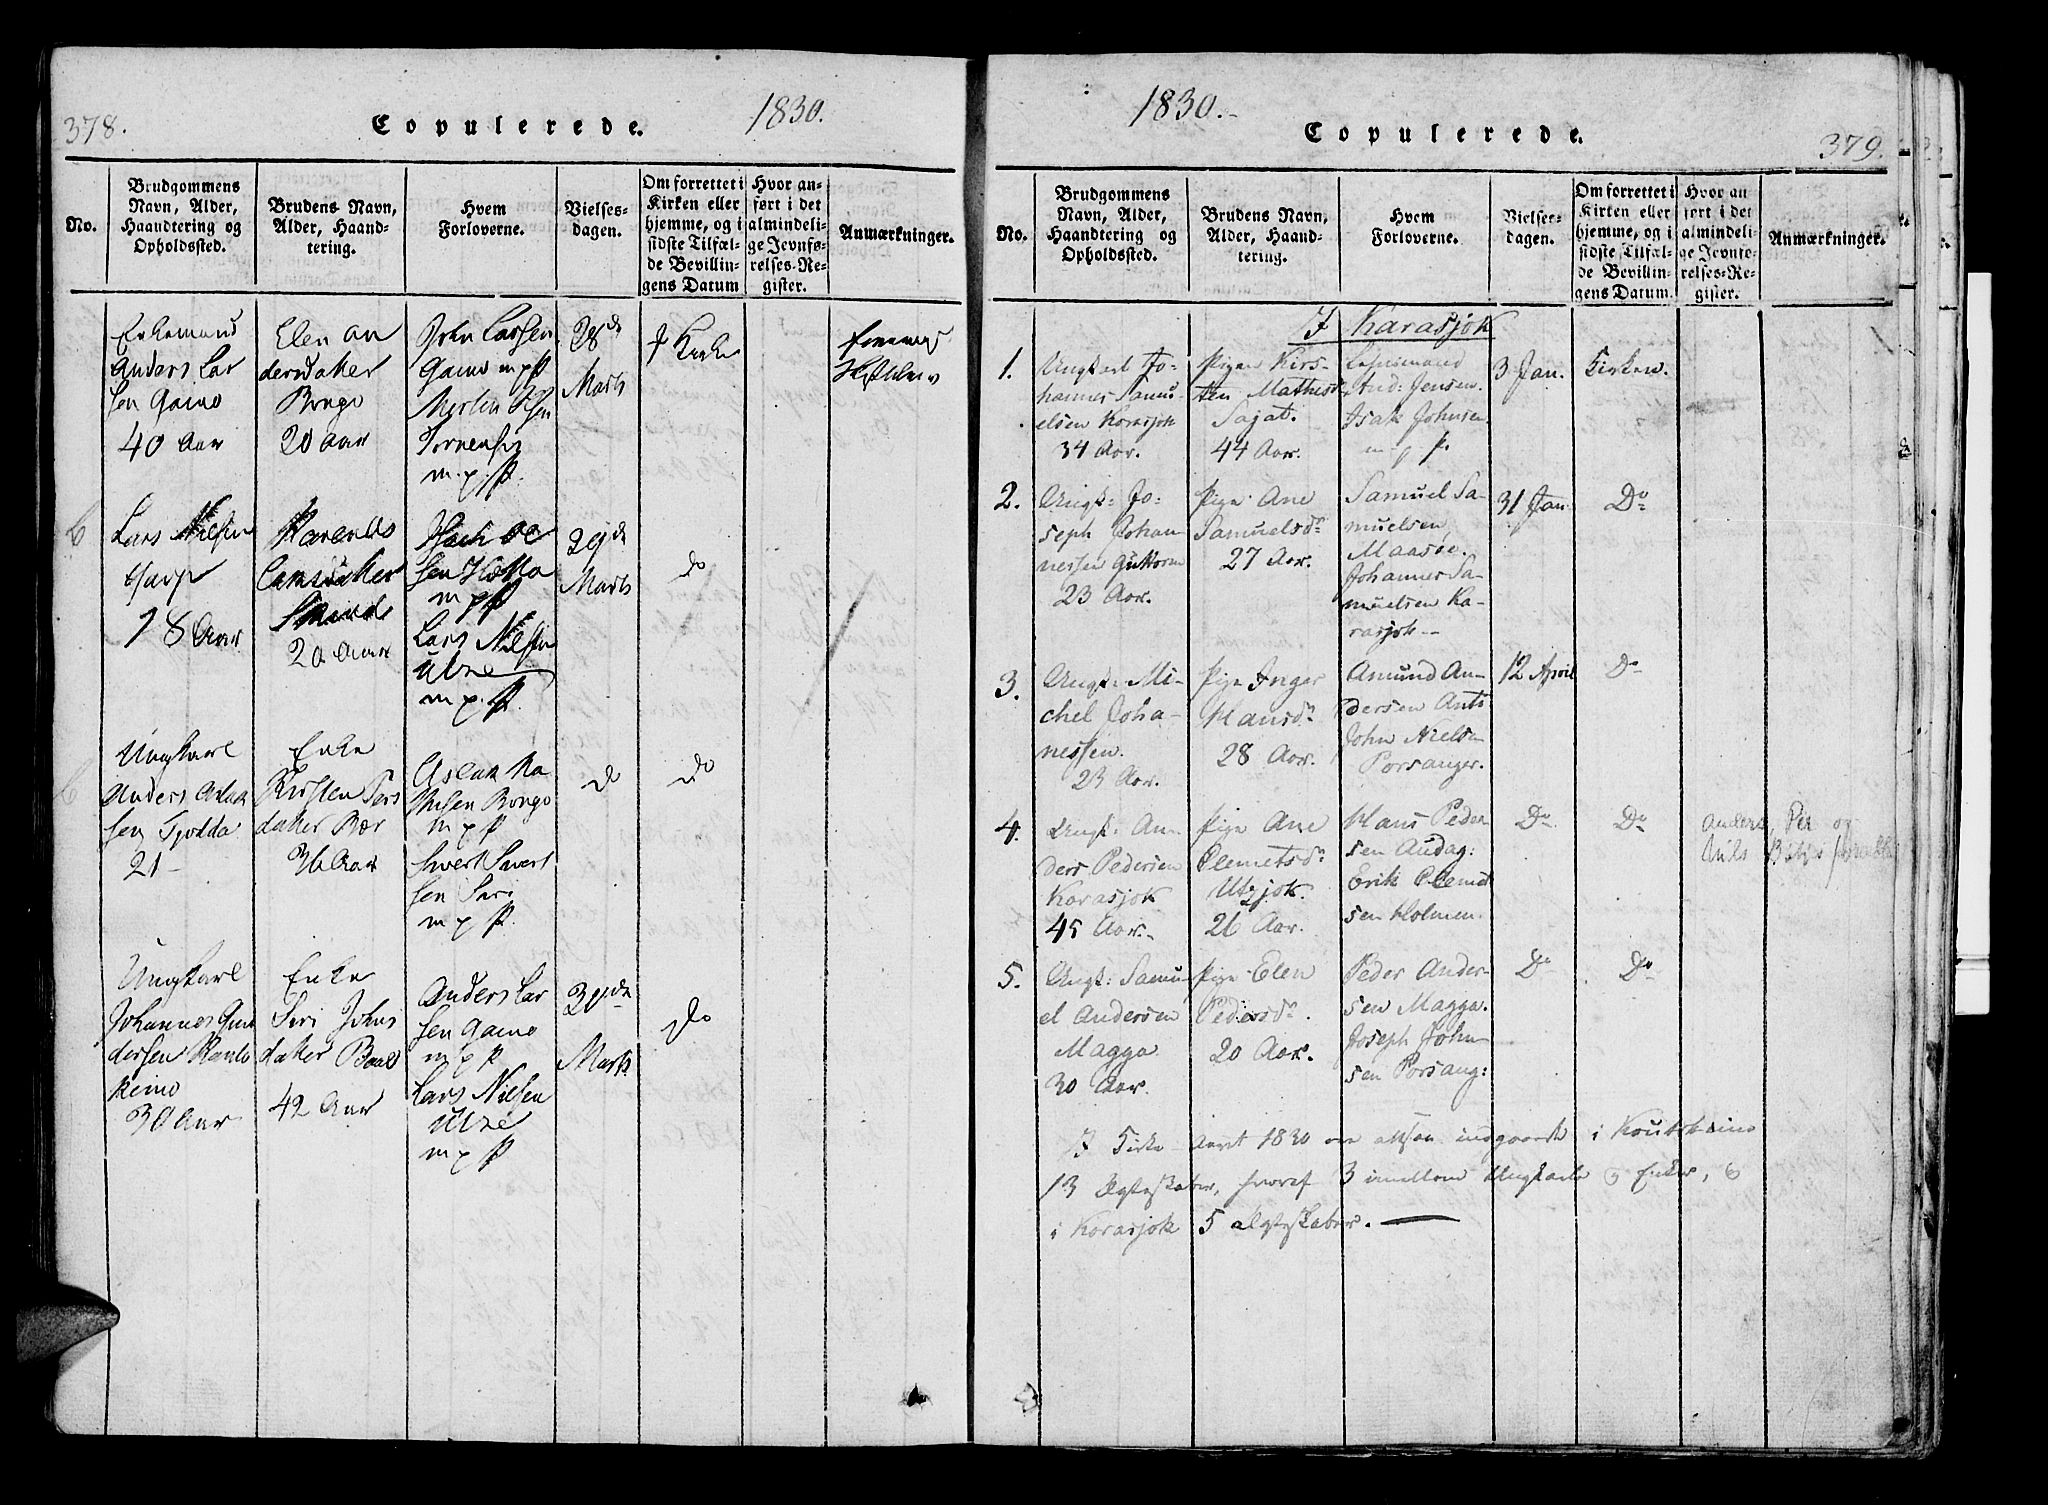 378.
Copulerede.
1830.
No.
Brudgommens
Navn, Alder,
Haandtering og
Opholdssted.
Brudens Navn,
Alder, Haand-
tering.
Hvem
Forloverne.
Vielses-
dagen.
Om forrettet i
Kirken eller
hjemme, og i
sidste Tilfæl-
de Bevillin-
gens Datum
Hvor an-
ført i det
almindeli-
ge Jevnfø-
relses-Re-
gister.
Anmærkninger.
Enkemand
Anders Lar
sen Gaino
40 Aar
Elen An
dersdatter
Bongo
20 Aar
John Larsen
Gaino m p P
Morten
m. p. P.
28de
Marts
I Kirke
6
Lars Nielsen
18 Aar
20 Aar
Isach Ol
sen Hætta
m p P
Lars Nielsen
Utze
m. p. P.
29de
Marts
Do
6
Ungkarl
Anders Aslak
sen Tjodda
21
Enke
Kirsten Pers
datter Bær
36 Aar
Aslak Ma
thisen Bongo
m p P
Sivert Sivert
sen Siri
m p P.
Do
Do
Ungkarl
Johannes Gun
dersen Kauto
keino
30 Aar
Enke
Siri Johns
datter Baal
42 Aar
Anders Lar
sen Gaino
m p P
Lars Nielsen
Utze
m p P
30de
Marts
Do
1830.
Copulerede.
379.
No.
Brudgommens
Navn, Alder,
Haandtering og
Opholdssted.
Brudens Navn,
Alder, Haand-
tering.
Hvem
Forloverne.
Vielses-
dagen.
Om forrettet i
Kirken eller
hjemme, og i
sidste Tilfæl-
de Bevillin-
gens Datum.
Hvor an
ført i det
almindeli-
ge Jevnfø-
relses-Re-
gister.
Anmærkninger.
I Karasjok
1.
Ungkarl Jo-
hannes Samu-
elsen Korasjok
34 Aar.
Pigen Kirs-
ten Mathisd.
Sajat.
44 Aar.
Lensmand
And: Jensen.
Isak Johnsen.
m p P.
3 Jan.
Kirken.
2.
Ungk: Jo-
seph Johan
nessen Guttorm
23 Aar.
Pige Ane
Samuelsdr
27 Aar.
Samuel Sa-
muelsen,
Maasøe.
Johannes Sa-
muelsen Ka-
rasjok.
31 Jan.
Do
3.
Ungk: Mi-
chel Joha-
nessen.
23 Aar.
Pige Inger
Hansdr
28 Aar.
Amund An-
dersen Anti
John Nielsen
Porsanger.
12 April
Do
4.
Ungk: An-
ders Pedersen
Korasjok
45 Aar.
Pige Ane
Clemetsdr
Utzjok.
26 Aar.
Hans Peder
sen Audag:
Erik Clemet
sen Holmen.
Do
Do
Anders, Per og
Nils
5.
Ungk: Samu-
el Andersen
Magga
30 Aar.
Pige Elen
Pedersdr.
20 Aar.
Peder Ander-
sen Magga.
Joseph John-
sen Porsang:
Do
Do
I Kirke-Aaret 1830 ere altsaa indgaaede i Koutokeino
13 Ægteskaber, hvoraf 3 imellem Ungkarle og Enker, og
i Korasjok 5 Ægteskaber.